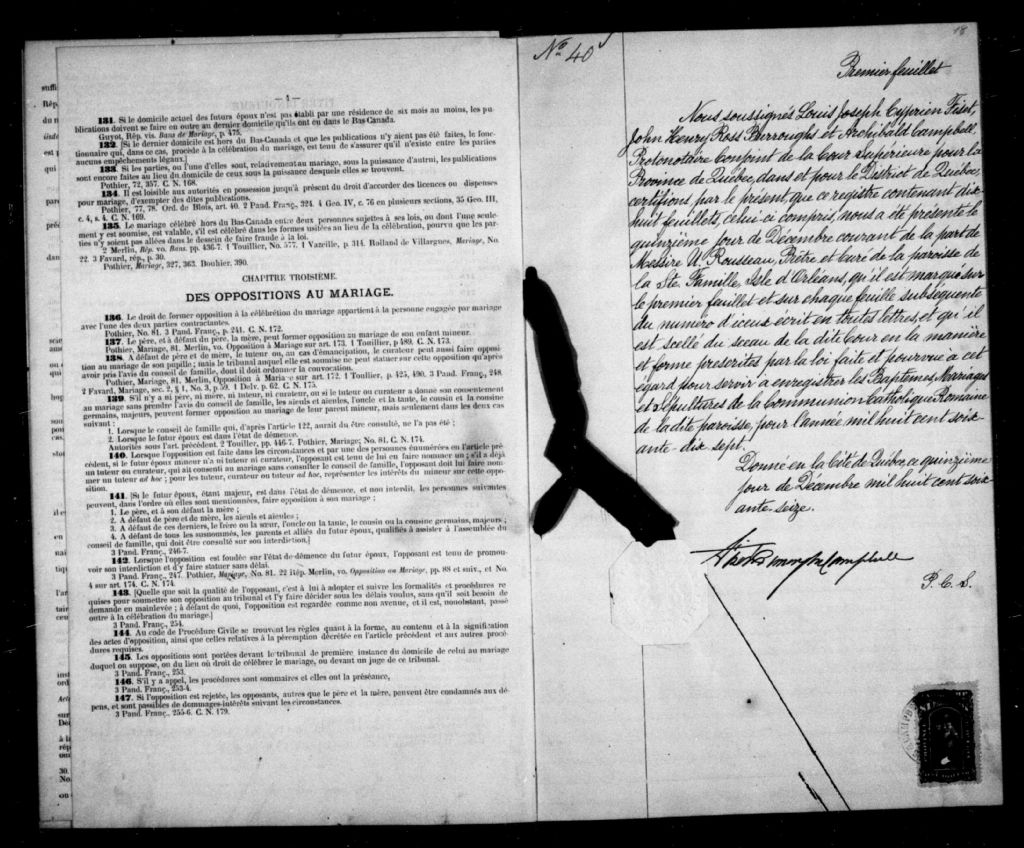 — 4 —
131. Si le domicile actuel des futurs époux n'est pas établi par une résidence de six mois au moins, les pu-
blications doivent se faire en outre au dernier domicile qu'ils ont eu dans le Bas-Canada.
Guyot, Rép. vis. Bans de Mariage, p. 475.
132. [Si le dernier domicile est hors du Bas-Canada et que les publications n'y aient pas été faites, le fonc-
tionnaire qui, dans ce cas, procède à la célébration du mariage, est tenu de s'assurer qu'il n'existe entre les parties
aucuns empêchements légaux.]
133. Si les parties, ou l'une d'elles sont, relativement au mariage, sous la puissance d'autrui, les publications
sont encore faites au lieu du domicile de ceux sous la puissance desquels elles se trouvent.
Pothier, 72, 357. C. N. 168.
134. Il est loisible aux autorités en possession jusqu'à présent du droit d'accorder des licences ou dispenses
pour mariage, d'exempter des dites publications.
Pothier, 77, 78. Ord. de Blois, art. 40. 2 Pand. Franç., 324. 4 Geo. IV, c. 76 en plusieurs sections, 35 Geo. III,
c. 4, s. 4. C. N. 169.
135. Le mariage célébré hors du Bas-Canada entre deux personnes sujettes à ses lois, ou dont l'une seule-
ment y est soumise, est valable, s'il est célébré dans les formes usitées au lieu de la célébration, pourvu que les par-
ties n'y soient pas allées dans le dessein de faire fraude à la loi.
2 Merlin, Rép. vo. Bans, pp. 436-7. 1 Toullier, No. 577. 1 Vazeille, p. 314. Rolland de Villargues, Mariage, No.
22. 3 Favard, rép., p. 30.
Pothier, Mariage, 327, 363. Bouhier, 390.
CHAPITRE TROISIÈME.
DES OPPOSITIONS AU MARIAGE.
136. Le droit de former opposition à la célébration du mariage appartient à la personne engagée par mariage
avec l'une des deux parties contractantes.
Pothier, No. 81. 3 Pand. Franç., p. 241. C. N. 172.
137. Le père, et à défaut du père, la mère, peut former opposition au mariage de son enfant mineur.
Pothier, Mariage, 81. Merlin, vo. Opposition à Mariage sur art. 173. 1 Toullier, p 489. C. N. 173.
138. A défaut de père et de mère, le tuteur ou, au cas d'émancipation, le curateur peut aussi faire opposi-
tion au mariage de son pupille; mais le tribunal auquel elle est soumise ne peut statuer sur cette opposition qu'après
avoir pris l'avis du conseil de famille, dont il doit ordonner la convocation.
Pothier, Mariage, 81. Merlin, Opposition à Mariage sur art. 172. 1 Toullier, p. 425, 490. 3 Pand. Franç., 248.
2 Favard, Mariage, sec. 2, § 1, No. 3, p. 59. 1 Delv. p. 62. C. N. 175.
139. S'il n'y a ni père, ni mère, ni tuteur, ni curateur, ou si le tuteur ou curateur a donné son consentement
au mariage sans prendre l'avis du conseil de famille, les aïeuls et aïeules, l'oncle et la tante, le cousin et la cousine
germains, majeurs, peuvent former opposition au mariage de leur parent mineur, mais seulement dans les deux cas
suivant :
1. Lorsque le conseil de famille qui, d'après l'article 122, aurait du être consulté, ne l'a pas été ;
2. Lorsque le futur époux est dans l'état de démence.
Autorités sous l'art. précédent. 2 Touiller, pp. 446-7. Pothier, Mariage; No. 81. C. N. 174.
140. Lorsque l'opposition est faite dans les circonstances et par une des personnes énumérées en l'article pré-
cédent, si le futur époux mineur n'a ni tuteur ni curateur, l'opposant est tenu de lui en faire nommer un ; s'il a déjà
un tuteur ou curateur, qui ait consenti au mariage sans consulter le conseil de famille, l'opposant doit lui faire nom-
mer un tuteur ad hoc ; pour les tuteur, curateur ou tuteur ad hoc, représenter les intérêts du mineur sur cette oppo-
sition.
141. [Si le futur époux, étant majeur, est dans l'état de démence, et non interdit, les personnes suivantes
peuvent, dans l'ordre où elles sont mentionnées, faire opposition à son mariage ;
1. Le père, et à son défaut la mère ;
2. A défaut de père et de mère, les aïeuls et aïeules ;
3. A défaut de ces derniers, le frère ou la sœur, l'oncle ou la tante, le cousin ou la cousine germains, majeurs ;
4. A défaut de tous les susnommés, les parents et alliés du futur époux, qualifiés à assister à l'assemblée du
conseil de famille, qui doit être consulté sur son interdiction.]
3 Pand. Franç., 246-7.
142. Lorsque l'opposition est fondée sur l'état de démence du futur époux, l'opposant est tenu de promou-
voir son interdiction et d'y faire statuer sans délai.
3 Pand. Franç., 247. Pothier, Mariage, No. 81. 22 Rép. Merlin, vo. Opposition au Mariage, pp. 88 et suiv., et No.
4 sur art. 174. C. N. 174.
143. [Quelque soit la qualité de l'opposant, c'est à lui à adopter et suivre les formalités et procédures re
quises pour soumettre son opposition au tribunal et l'y faire décider sous les délais voulus, sans qu'il soit besoin de
demande en mainlevée ; à défaut de quoi, l'opposition est regardée comme non avenue, et il est, nonobstant, passé
outre à la célébration du mariage.]
3 Pand. Franç., 254.
144. Au code de Procédure Civile se trouvent les règles quant à la forme, au contenu et à la signification
des actes d'opposition, ainsi que celles relatives à la péremption décrétée en l'article précédent et aux autres procé-
dures requises.
145. Les oppositions sont portées devant le tribunal de première instance du domicile de celui au mariage
duquel on suppose, ou du lieu où droit de célébrer le mariage, ou devant un juge de ce tribunal.
3 Pand. Franç., 253.
146. S'il y a appel, les procédures sont sommaires et elles ont la préséance,
3 Pand. Franç., 253-4.
147. Si l'opposition est rejetée, les opposants, autres que le père et la mère, peuvent être condamnés aux dé-
pens, et sont passibles de dommages-intérêts suivant les circonstances.
3 Pand. Franç., 255-6. C. N. 179.
No 40
18
Premier feuillet
Nous soussignés Louis Joseph Cyprien Fiset,
John Henry Ross Burroughs et Archibald Campbell,
Protonotaire Conjoint de la Cour Supérieure pour la
Province de Québec, dans et pour le District de Québec,
certifions par le présent, que ce registre contenant dix
huit feuillets, celui ce compris, nous a été présenté le
quinzième jour de Décembre courant de la part de
Messire U. Rousseau, Prêtre et Curé de la paroisse de
la Ste. Famille, Isle d'Orléans, qu'il est marqué sur
le premier feuillet et sur chaque feuille subséquente
du numero d'iceux écrit en toutes lettres, et qu'il
est scellé du sceau de la dite Cour en la manière
et forme prescrites par la loi faite et pourvue a cet
egard pour servir a enregistrer les Baptêmes, Mariages
et Sépultures de la Communion Catholique Romaine
de la dite paroisse, pour l'année mil huit cent soix
ante-dix sept.
Donné en la Cité de Québec, ce quinzième
jour de Décembre mil huit cent soix
ante-seize.
Fiset Burroughs Campbell
P. C. S.